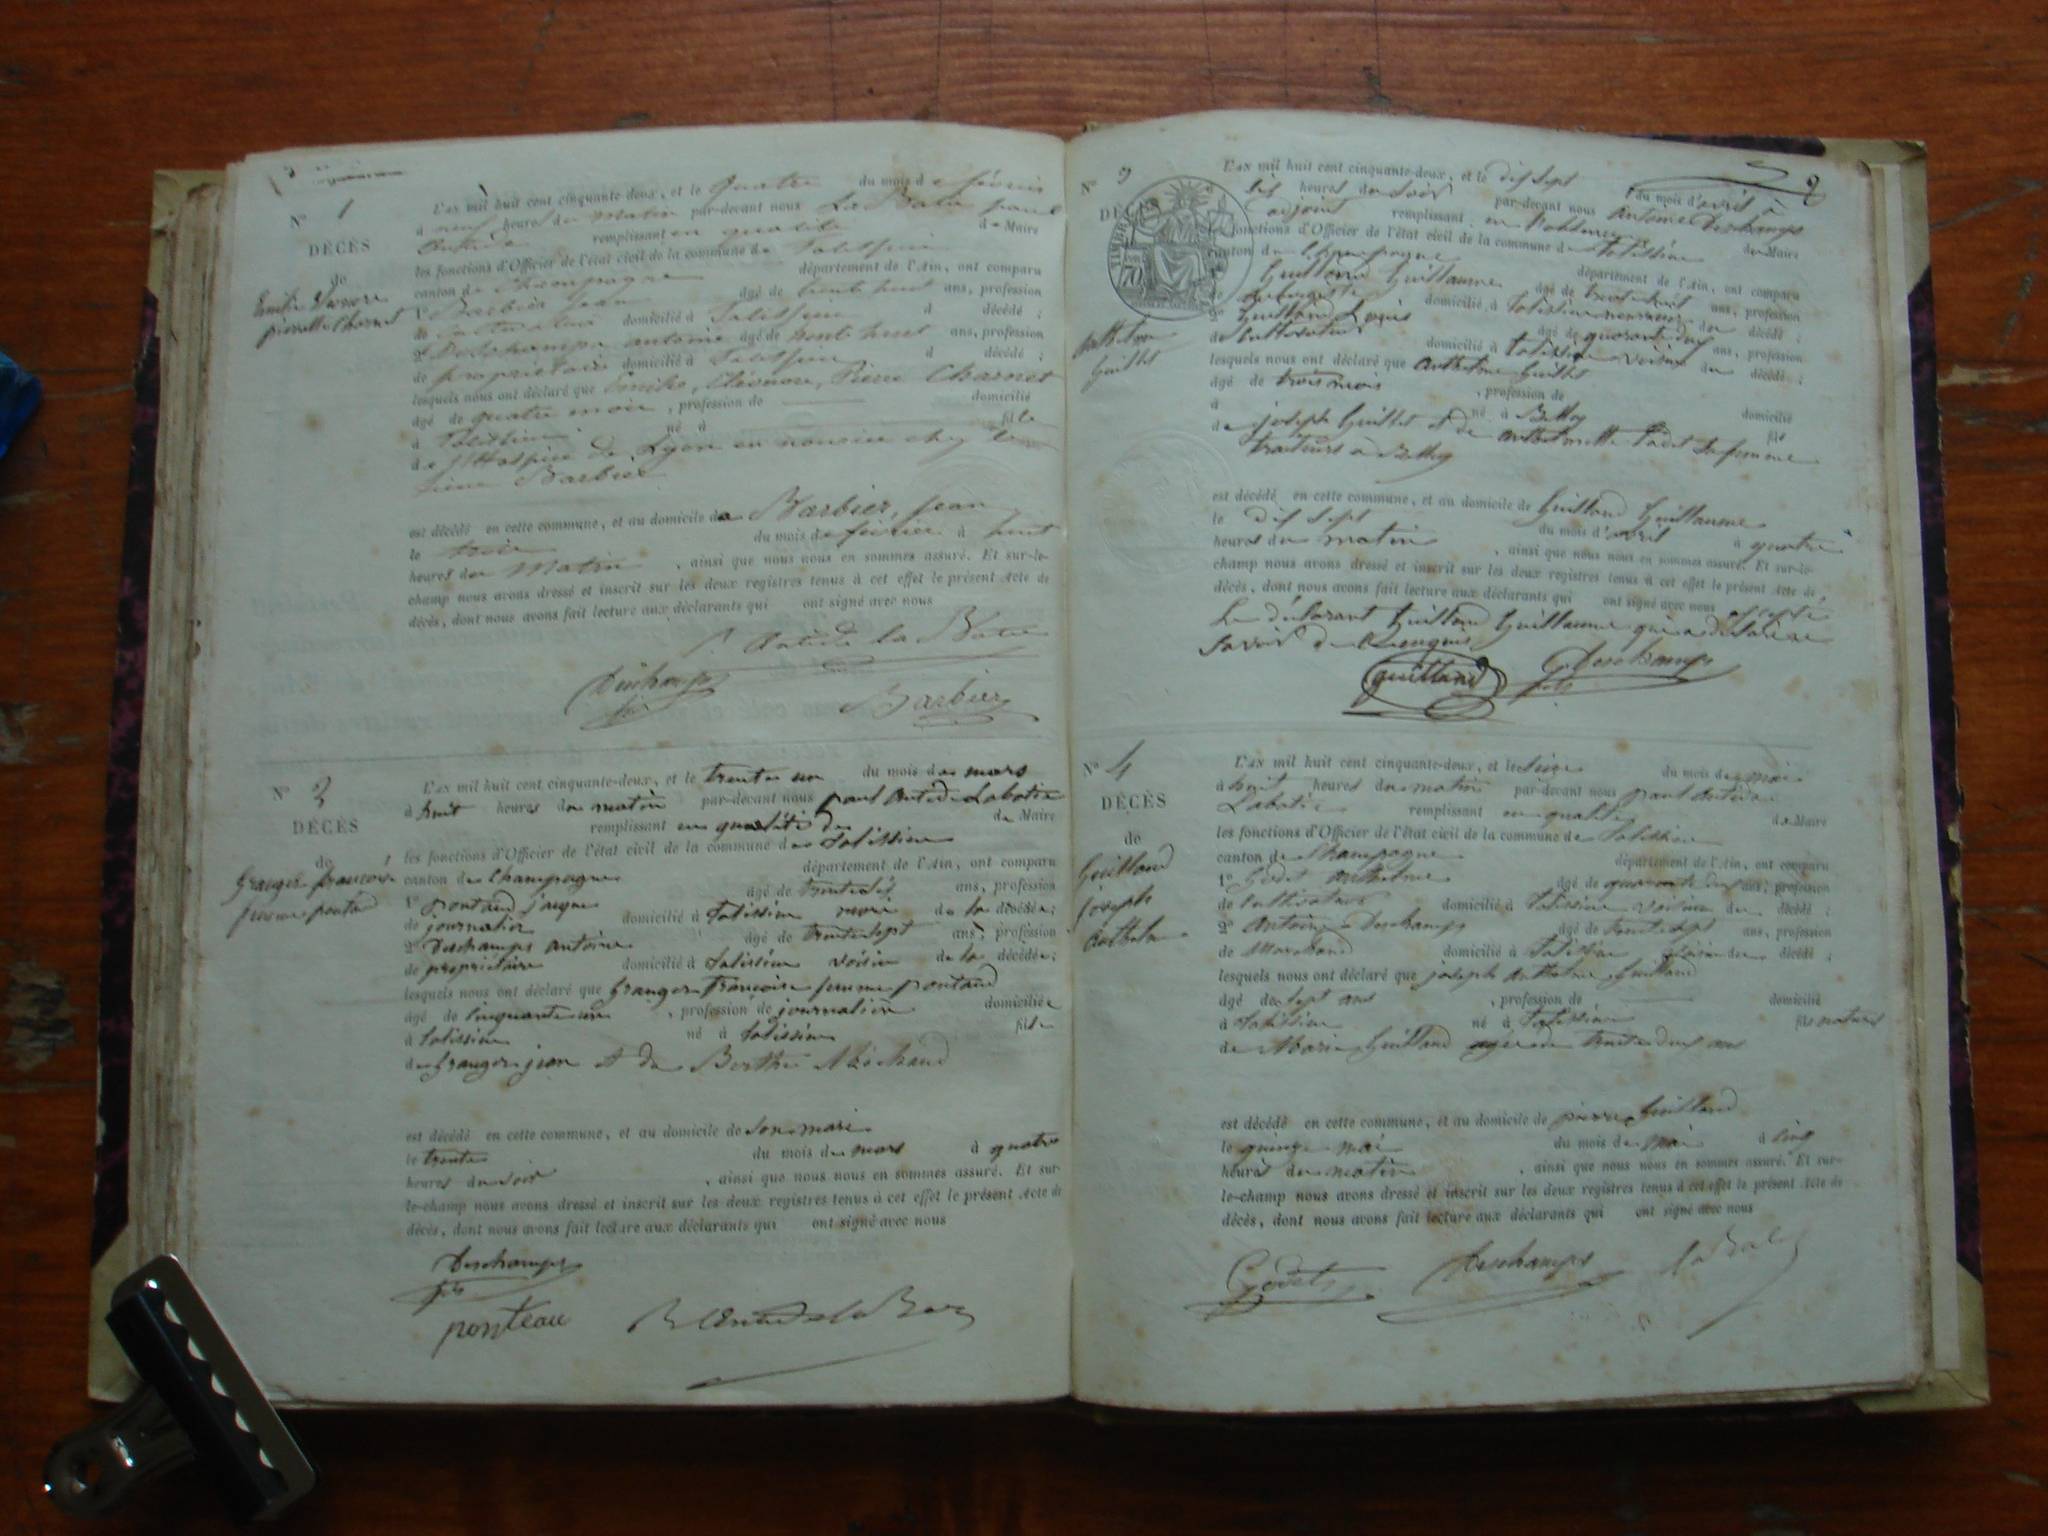 N° 1
DÉCÈS
de
pierrette Charnet
L'AN mil huit cent cinquante-deux, et le quatre du mois de février
à neuf heures du matin par-devant nous La Batie paul
Antide remplissant en qualité de Maire
les fonctions d'Officier de l'état civil de la commune de Talissieu
canton de Champagne département de l'Ain, ont comparu
1° Barbier Jean âgé de trente huit ans, profession
de cultivateur domicilié à Talissieu d décédé ;
2° Deschamps antoine âgé de trente huit ans, profession
de propriétaire domicilié à Talissieu d décédé ;
lesquels nous ont déclaré que Emilie, Eléonore, Pierre Charnet
âgé de quatre mois, profession de domicilié
à Talissieu né à fille
de l'Hospice de Lyon en nourrice chez le
sieur Barbier
est décédé en cette commune, et au domicile de Barbier, Jean
le trois du mois de février à huit
heures du Matin, ainsi que nous nous en sommes assuré. Et sur-le-
champ nous avons dressé et inscrit sur les deux registres tenus à cet effet le présent Acte de
décès, dont nous avons fait lecture aux déclarants qui ont signé avec nous
P. Antide la Batie
Deschamps
fils
Barbier
N° 2
DÉCÈS
de
Granger françoise
femme pontaud
L'AN mil huit cent cinquante-deux, et le trente un du mois de mars
à huit heures du matin par-devant nous paul Antide Labatie
remplissant en qualité de de Maire
les fonctions d'Officier de l'état civil de la commune de Talissieu
canton de Champagne département de l'Ain, ont comparu
1° pontaud jacque âgé de trente six ans, profession
de journalier domicilié à Talissieu mari de la décédée ;
2° Deschamps Antoine âgé de trente sept ans, profession
de propriétaire domicilié à Talissieu voisin de la décédée ;
lesquels nous ont déclaré que Granger françoise femme pontaud
âgé de cinquante un, profession de journalière domiciliée
à Talissieu né à Talissieu fille
de Granger jean et de Berthe Michaud
est décédé en cette commune, et au domicile de son mari
le trente du mois de mars à quatre
heures du soir, ainsi que nous nous en sommes assuré. Et sur-
le-champ nous avons dressé et inscrit sur les deux registres tenus à cet effet le présent Acte de
décès, dont nous avons fait lecture aux déclarants qui ont signé avec nous
Deschamps
fils
ponteau
2
N° 3
DÉCÈS
TIMBRE
70
Anthelme
Guillet
L'AN mil huit cent cinquante-deux, et le dix sept du mois d'avril à
six heures du soir par-devant nous Antoine Deschamps
adjoint remplissant en de Maire
les fonctions d'Officier de l'état civil de la commune de Talissieu
canton de Champagne département de l'Ain, ont comparu
Guilland Guillaume âgé de trente huit ans, profession
de domicilié à Talissieu nourricier du décédé ;
2° Guilland Louis âgé de quarante deux ans, profession
de Cultivateur domicilié à Talissieu voisin du décédé ;
lesquels nous ont déclaré que Anthelme Guillet
âgé de trois mois, profession de
à né à Belley domicilié
de joseph Guillet et de Anthelmette sa femme fils
traiteurs à Belley
est décédé en cette commune, et au domicile de Guilland Guillaume
le dix sept du mois d'avril à quatre
heures du matin, ainsi que nous nous en sommes assuré. Et sur-le-
champ nous avons dressé et inscrit sur les deux registres tenus à cet effet le présent Acte de
décès, dont nous avons fait lecture aux déclarants qui ont signé avec nous excepté
Le déclarant Guilland Guillaume qui a déclaré ne
savoir de ce enquis
guilland
Deschamps
fils
N° 4
DÉCÈS
de
Guilland
joseph
Anthelme
L'AN mil huit cent cinquante-deux, et le seize du mois de mai
à huit heures du matin par-devant nous paul Antide
Labatie remplissant en qualité de Maire
les fonctions d'Officier de l'état civil de la commune de Talissieu
canton de Champagne département de l'Ain, ont comparu
1° Godet Anthelme âgé de quarante deux ans, profession
de Cultivateur domicilié à Talissieu voisin du décédé ;
2° Antoine Deschamps âgé de trente sept ans, profession
de Marchand domicilié à Talissieu voisin du décédé ;
lesquels nous ont déclaré que joseph Anthelme Guilland
âgé de sept ans, profession de domicilié
à Talissieu né à Talissieu fils naturel
de Marie Guilland agée de trente deux ans
est décédé en cette commune, et au domicile de pierre Guilland
le quinze mai du mois de mai à cinq
heures du matin, ainsi que nous nous en sommes assuré. Et sur-
le-champ nous avons dressé et inscrit sur les deux registres tenus à cet effet le présent Acte de
décès, dont nous avons fait lecture aux déclarants qui ont signé avec nous
Godet
Deschamps